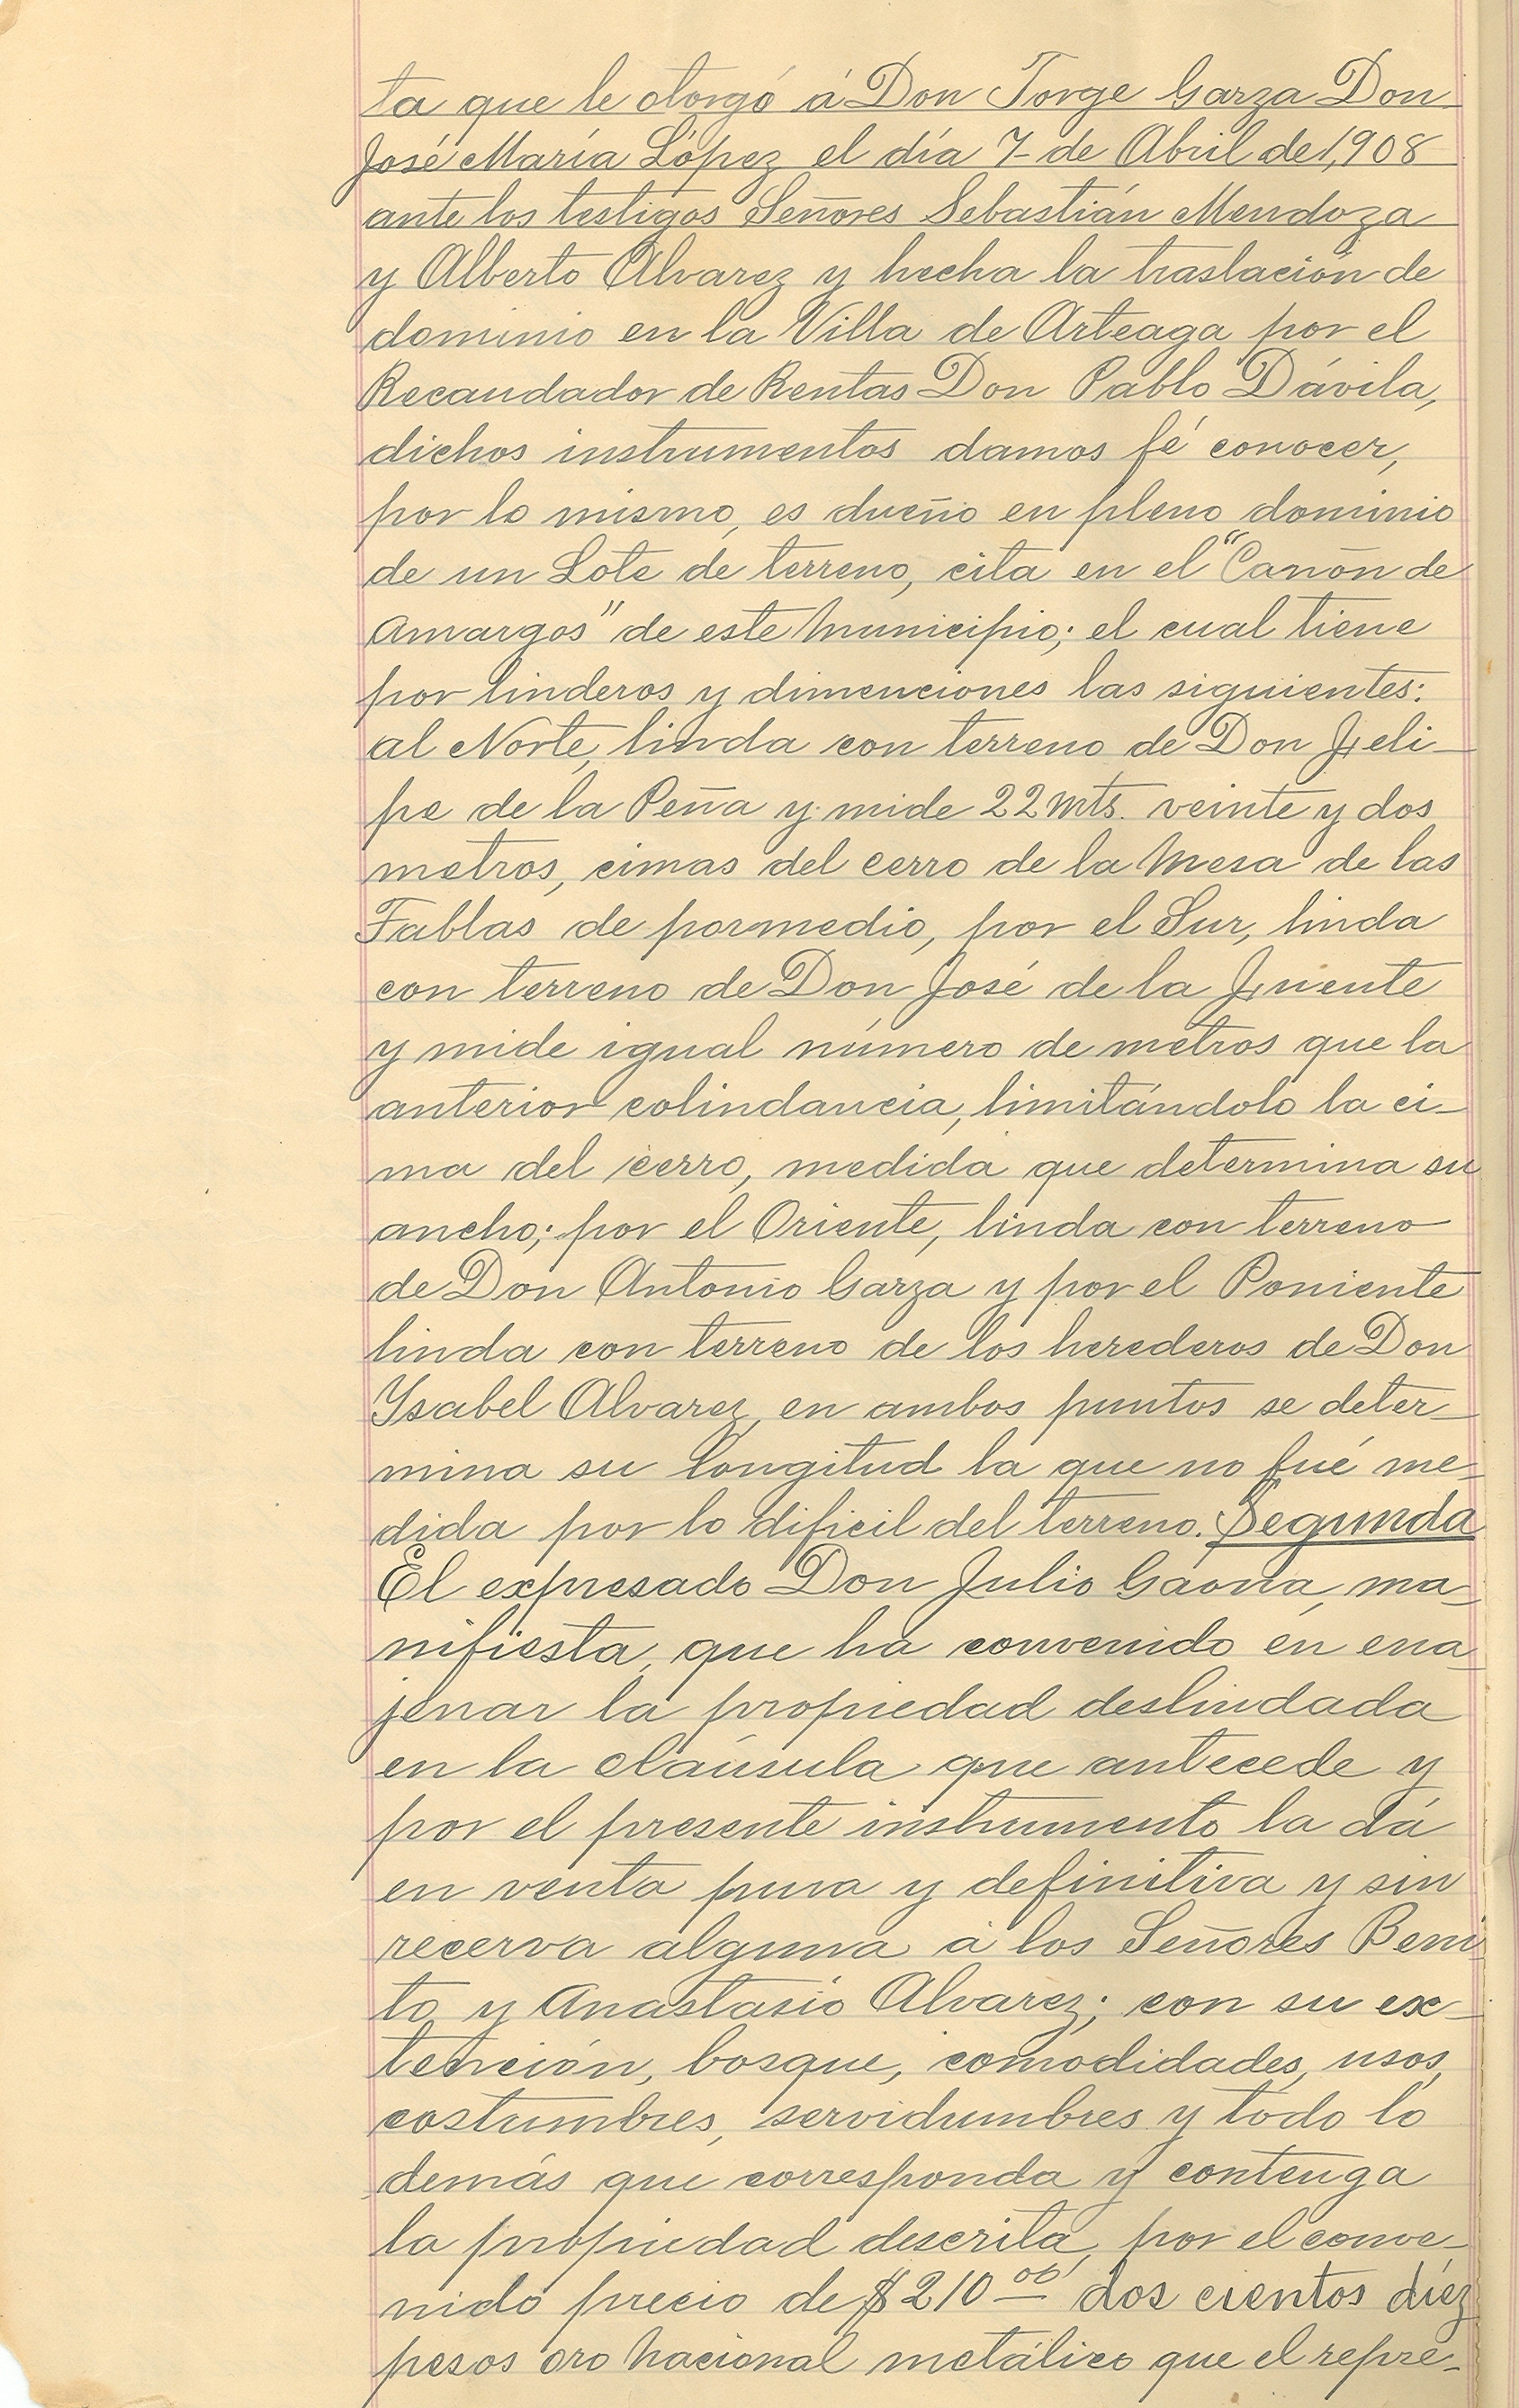 ta que le otorgó á Don Jorge Garza Don
José María López el día 7 de Abril de 1,908
ante los testigos Señores Sebastián Mendoza
y Alberto Alvarez y hecha la traslación de
dominio en la Villa de Arteaga por el
Recaudador de Rentas Don Pablo Dávila,
dichos instrumentos damos fé conocer,
por lo mismo, es dueño en pleno dominio
de un Lote de terreno, cita en el "Cañón de
Amargos" de este Municipio; el cual tiene
por linderos y dimenciones las siguientes:
al Norte, linda con terreno de Don Feli-
pe de la Peña y mide 22 mts. veinte y dos
metros, cimas del cerro de la Mesa de las
Tablas de pormedio, por el Sur, linda
con terreno de Don José de la Fuente
y mide igual número de metros que la
anterior colindancia, limitándolo la ci-
ma del cerro, medida que determina su
ancho; por el Oriente, linda con terreno
de Don Antonio Garza y por el Poniente
linda con terreno de los herederos de Don
Ysabel Alvarez, en ambos puntos se deter-
mina su longitud la que no fué me-
dida por lo dificil del terreno. Segunda
El expresado Don Julio Gaona, ma-
nifiesta, que ha convenido en ena-
jenar la propiedad deslindada
en la claúsula que antecede y
por el presente instrumento la dá
en venta pura y definitiva y sin
recerva alguna á los Señores Beni
to y Anastasio Alvarez; con su ex-
tención, bosque, comodidades, usos,
costumbres, servidumbres y todo lo
demás que corresponda y contenga
la propiedad descrita, por el conve-
nido precio de $210 00 dos cientos diez
pesos oro Nacional metálico que el repre-